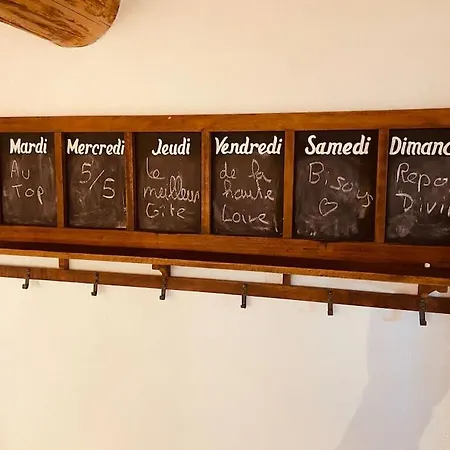 Mardi
Au
Top
Mercredi
5/5
Jeudi
Le
meilleur
Gîte
Vendredi
de la
haute
Loire
Samedi
Bisous
♡
Dimanc
Repo
Divin